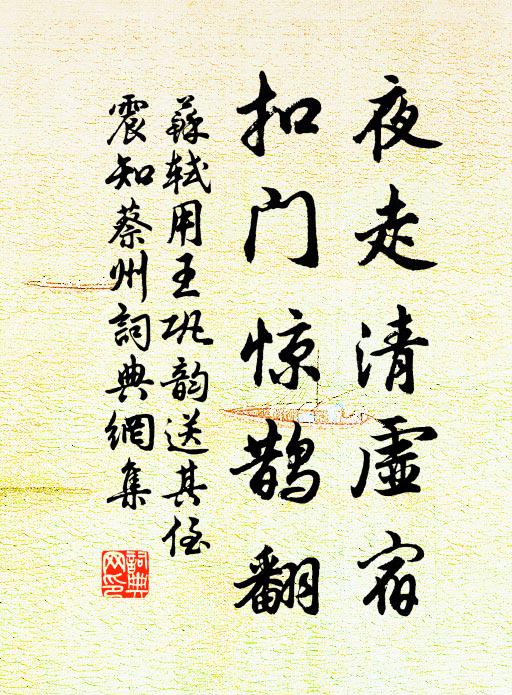 夜走清虚宿
扣门惊鹊翻
蘇軾用王巩韵送其侄
震知蔡州詞典網集
詞典
网印